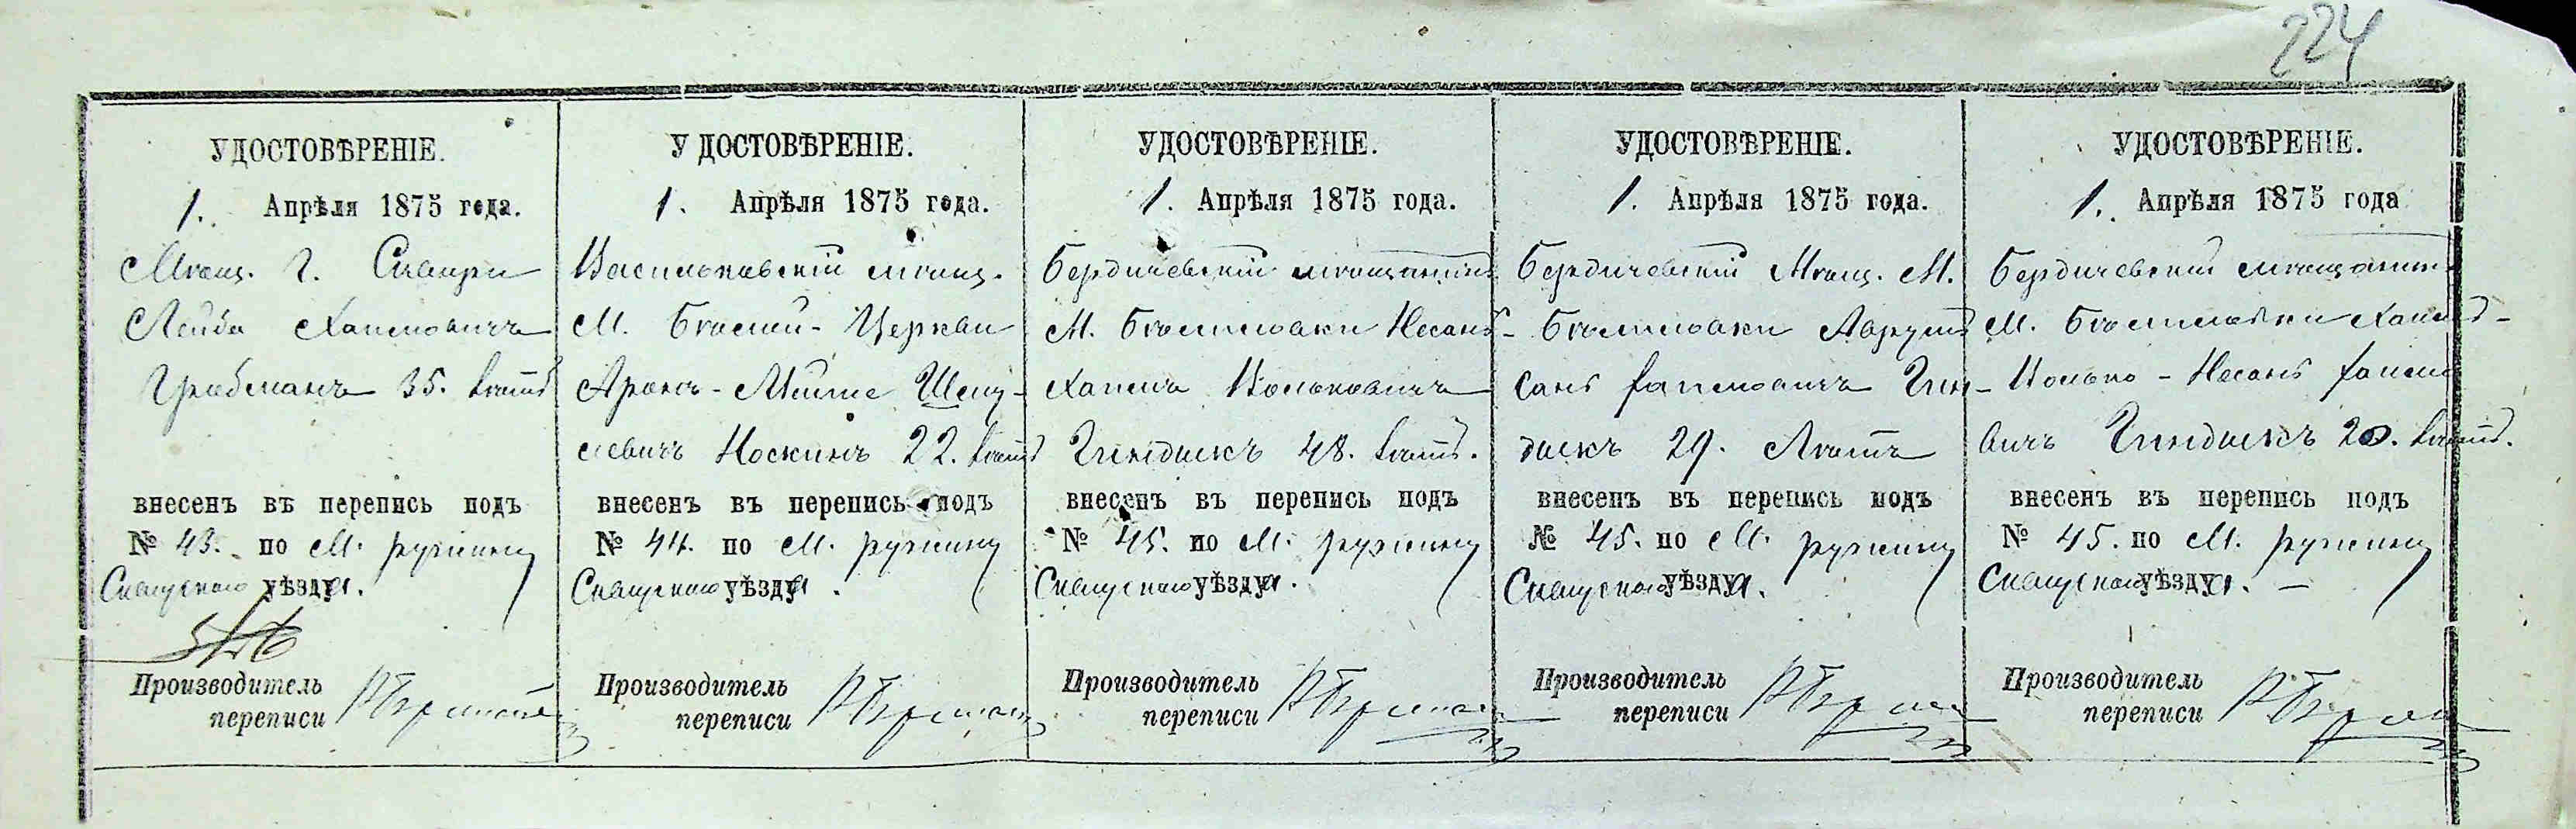 224
УДОСТОВѢРЕНІЕ.
1. Апрѣля 1875 года.
Мѣщ. г. Сквири
Лейба Хаимовичъ
Грабманъ 35. лѣтъ
внесенъ въ перепись подъ
№ 43. по М. Ружину
Сквирскаго уѣзда.
Производитель
переписи
УДОСТОВѢРЕНІЕ.
1. Апрѣля 1875 года.
Васильковскій мѣщ.
М. Бѣлой-Церкви
Аронъ-Мойше Шму-
левичъ Носкинъ 22. лѣтъ
внесенъ въ перепись подъ
№ 44. по М. Ружину
Сквирскаго уѣзда.
Производитель
переписи
УДОСТОВѢРЕНІЕ.
1. Апрѣля 1875 года.
Бердичевскій мѣщанинъ
М. Бѣлиловки Несанъ-
Хаимъ Вольковичъ
Гиндыкъ 48. лѣтъ.
внесенъ въ перепись подъ
№ 45. по М. Ружину
Сквирскаго уѣзда.
Производитель
переписи
УДОСТОВѢРЕНІЕ.
1. Апрѣля 1875 года.
Бердичевскій Мѣщ. М.
Бѣлиловки
Хаимовичъ Гин-
дыкъ 29. Лѣтъ
внесенъ въ перепись подъ
№ 45. по М. Ружину
Сквирскаго уѣзда.
Производитель
переписи
УДОСТОВѢРЕНІЕ.
1. Апрѣля 1875 года
Бердичевскій мѣщанин.
М. Бѣлиловки
Волько-Несанъ Хаимо
вичъ Гиндыкъ 20. лѣтъ.
внесенъ въ перепись подъ
№ 45. по М. Ружину
Сквирскаго уѣзда. —
Производитель
переписи